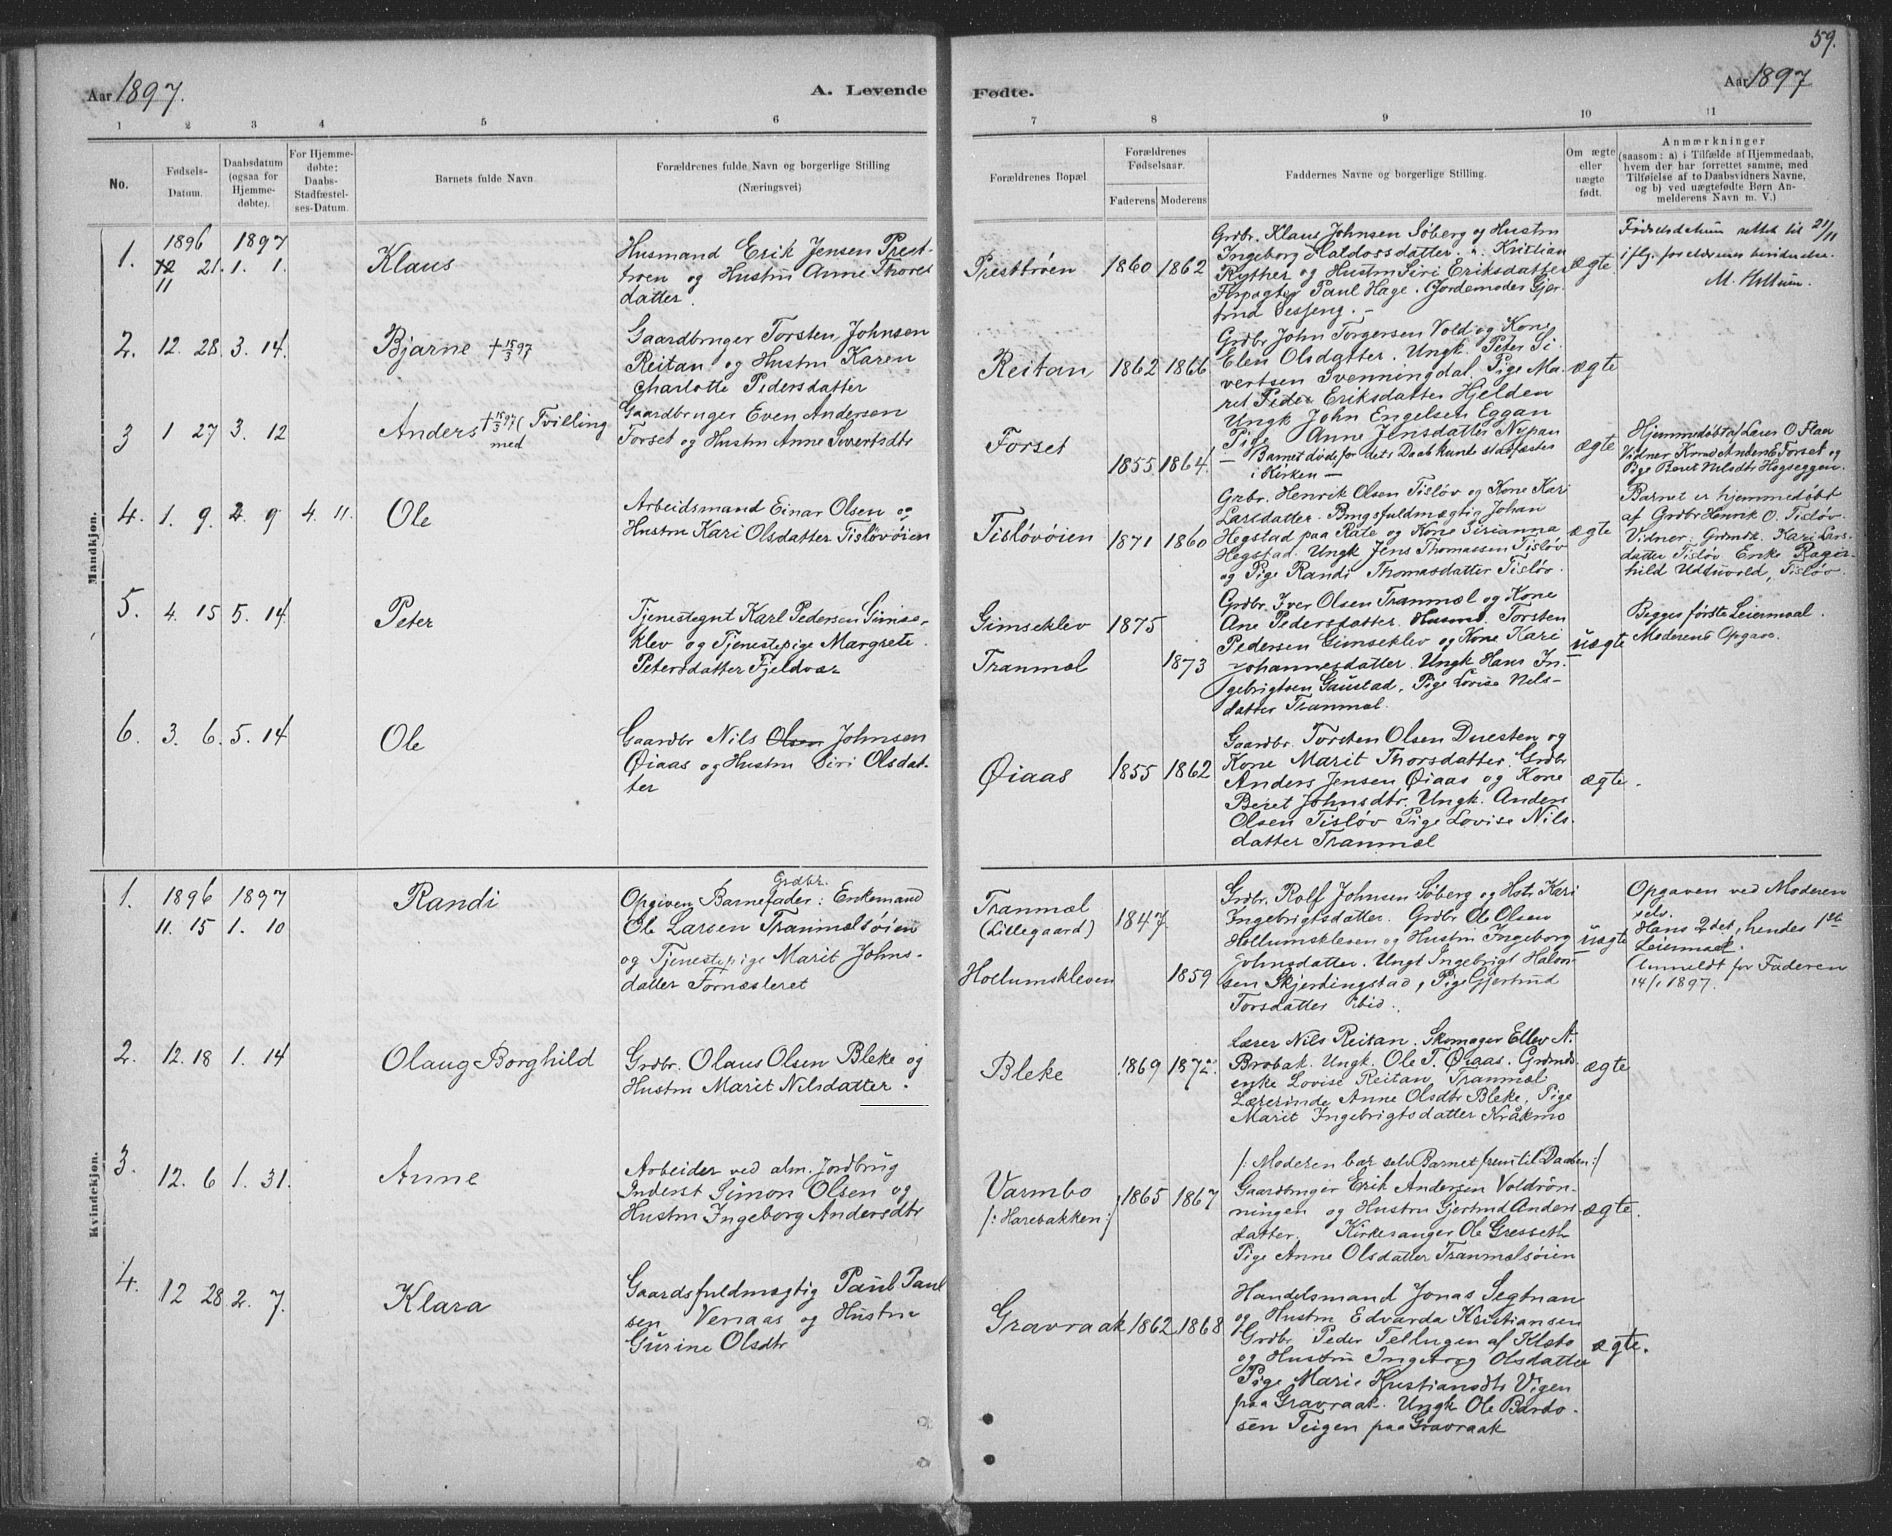 59.
Aar 1897.
A. Levende
Fødte.
Aar 1897
1 2 3 4 5 6
7 8 9 10 11
No.
Fødsels-
Datum.
Daabsdatum
(ogsaa for
Hjemme-
døbte).
For Hjemme-
døbte:
Daabs-
Stadfæstel-
ses-Datum.
Barnets fulde Navn
Forældrenes fulde Navn og borgerlige Stilling
(Næringsvei)
Forældrenes Bopæl.
Forældrenes
Fødselsaar.
Faderens Moderens
Faddernes Navne og borgerlige Stilling.
Om ægte
eller
uægte
født.
Anmærkninger
(saasom: a) i Tilfælde af Hjemmedaab,
hvem der har forrettet samme, med
Tilføielse af to Daabsvidners Navne,
og b) ved uægtefødte Børn An-
melderens Navn m. V.)
Mandkjøn.
1.
1896
12 21.
11
1897
1. 1.
Klaus
Husmand Erik Jensen Prest-
trøen og Hustru Anne Thores
datter.
Presttrøen
1860 1862
Grdbr. Klaus Johnsen Søberg og Hustru
Ingeborg Haldorsdatter. Kristian
Ryther og Hustru Siri Eriksdatter
Forpagter Paul Hage. Gjordemoder Gjer-
trud
ægte
Fødselsdatum rettet til 21/11
ifølg. forældrenes
M.
2. 12. 28. 3. 14.
Bjarne † 15/3 97
Gaardbruger Torsten Johnsen
Reitan og Hustru Karen
Charlotte Pedersdatter
Reitan
1862 1866
Grdbr John Torgersen Vold og Kone
Elen Olsdatter. Ungk. Peter Si-
vertsen Svenningdal. Pige Ma-
ret Peder Eriksdatter Hjelden
ægte
3 1 27 3. 12
Anders † 15/3 97 (Tvilling
med
Gaardbruger Even Andersen
Forset og Hustru Anne Sivertsdtr
Forset
1855 1864.
Ungk John Engelsen Eggan
Pige Anne Jensdatter Nypan
— Barnet døde før dets Daab kunde stadfæstes
i Kirken —
ægte
Hjemmedøbt af Lars O Flaa
Vidner Knud Anders E Forset og
Pige Beret Nilsdtr Høgseggen.
4. 1. 9. 2. 9 4. 11.
Ole
Arbeidsmand Einar Olsen og
Hustru Kari Olsdatter Tisløvøien
Tisløvøien
1871 1860
Grbr. Henrik Olsen Tisløv og Kone Kari
Larsdatter. Brugsfuldmægtig Johan
Hegstad paa Rate og Kone Sirianna
Hegstad. Ungk Jens Thomassen Tisløv
og Pige Randi Thomasdatter Tisløv.
ægte
Barnet er hjemmedøbt
af Grdbr Henrik O. Tisløv.
Vidner: Grdmdk. Kari Lars-
datter Tisløv. Enke Ragn-
hild Udduvold, Tisløv.
5. 4. 15 5. 14
Peter
Tjenestegut Karl Pedersen Gimse-
klev og Tjenestepige Margrete
Petersdatter Fjeldvær
Gimseklev 1875
Tranmæl 1873
Grdbr. Iver Olsen Tranmæl og Kone
Ane Pedersdatter. Husmd. Torsten
Pedersen Gimseklev og Kone Kari
Johannesdatter. Ungk Hans In-
gebrigtsen Gaustad, Pige Lovise Nils-
datter Tranmæl.
uægte
Begges første Leiermaal.
Moderens Opgave.
6. 3. 6. 5. 14
Ole
Gaardbr Nils Olsen Johnsen
Øiaas og Hustru Siri Olsdat-
ter
Øiaas
1855 1862
Gaardbr. Torsten Olsen Duesten og
Kone Marit Thorsdatter. Grdbr
Anders Jensen Øiaas og Kone
Beret Johnsdtr. Ungk. Anders
Olsen Tisløv Pige Lovise Nils-
datter Tranmæl
ægte.
Kvindekjøn.
1. 1896 1897
11. 15 1. 10
Randi
Grdbr.
Opgiven Barnefader: Enkemand
Ole Larsen Tranmælsøien
og Tjenestepige Marit Johns-
datter Tornesleret
Tranmæl
(Lillegaard) 1847.
Hollumskleven 1859
Grdbr. Rolf Johnsen Søberg og Hstr Kari
Ingebrigtsdatter. Grdbr Ole Olsen
Hollumskleven og Hustru Ingeborg
Johnsdatter. Ungk Ingebrigt Halvor-
sen Skjerdingstad, Pige Gjertrud
Torsdatter ibid.
uægte
Opgaven ved Moderen
selv.
Hans 2det, hendes 1ste
Leiermaal.
(Anmeldt for Faderen
14/1 1897.
2. 12. 18 1. 14
Olaug Borghild
Grdbr. Olaus Olsen Bleke og
Hustru Marit Nilsdatter.
Bleke
1869 1872.
Lærer Nils Reitan. Skomager Ellev A.
Brobak. Ungk. Ole T. Øiaas. Grdmds-
enke Lovise Reitan, Tranmæl
Lærerinde Anne Olsdtr Bleke, Pige
Marit Ingebrigtsdatter Kråkmo
ægte
3. 12. 6 1. 31.
Anne
Arbeider ved alm. Jordbrug
Inderst Simon Olsen og
Hustru Ingeborg Andersdtr
Varmbo
/: Harebakken :/
1865 1867
/: Moderen bar selv Barnet frem til Daaben :/
Gaardbruger Erik Andersen Voldrøn-
ningen og Hustru Gjertrud Anders
datter. Kirkesanger Ole Gresseth
Pige Anne Olsdatter Tranmælsøien
ægte.
4. 12 28 2. 7.
Klara
Gaardsfuldmægtig Paul Paul
sen Venaas og Hustru
Gurine Olsdtr
Gravraak 1862 1868
Handelsmand Jonas Segtnan
og Hustru Edvarda Kristiansen
Grdbr. Peder Tellugen af Klæbo
og Hustru Ingeborg Olsdatter
Pige Marie Kristiansdtr Vigen
paa Gravraak. Ungk Ole Bardo-
sen Teigen paa Gravraak
ægte.